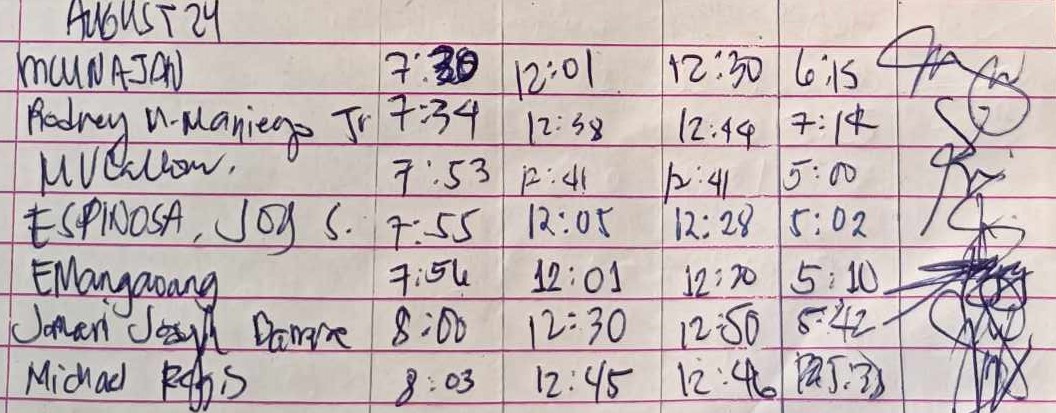 AUGUST 24
MCUNAJAN 7:30 12:01 12:30 6:15
Rodney N. Maniego Jr 7:34 12:38 12:44 7:14
7:53 12:41 12:41 5:00
ESPINOSA, JOY S. 7:55 12:05 12:28 5:02
EMangaoang 7:56 12:01 12:30 5:10
Joseph 8:00 12:30 12:50 5:42
Michael 8:03 12:45 12:46